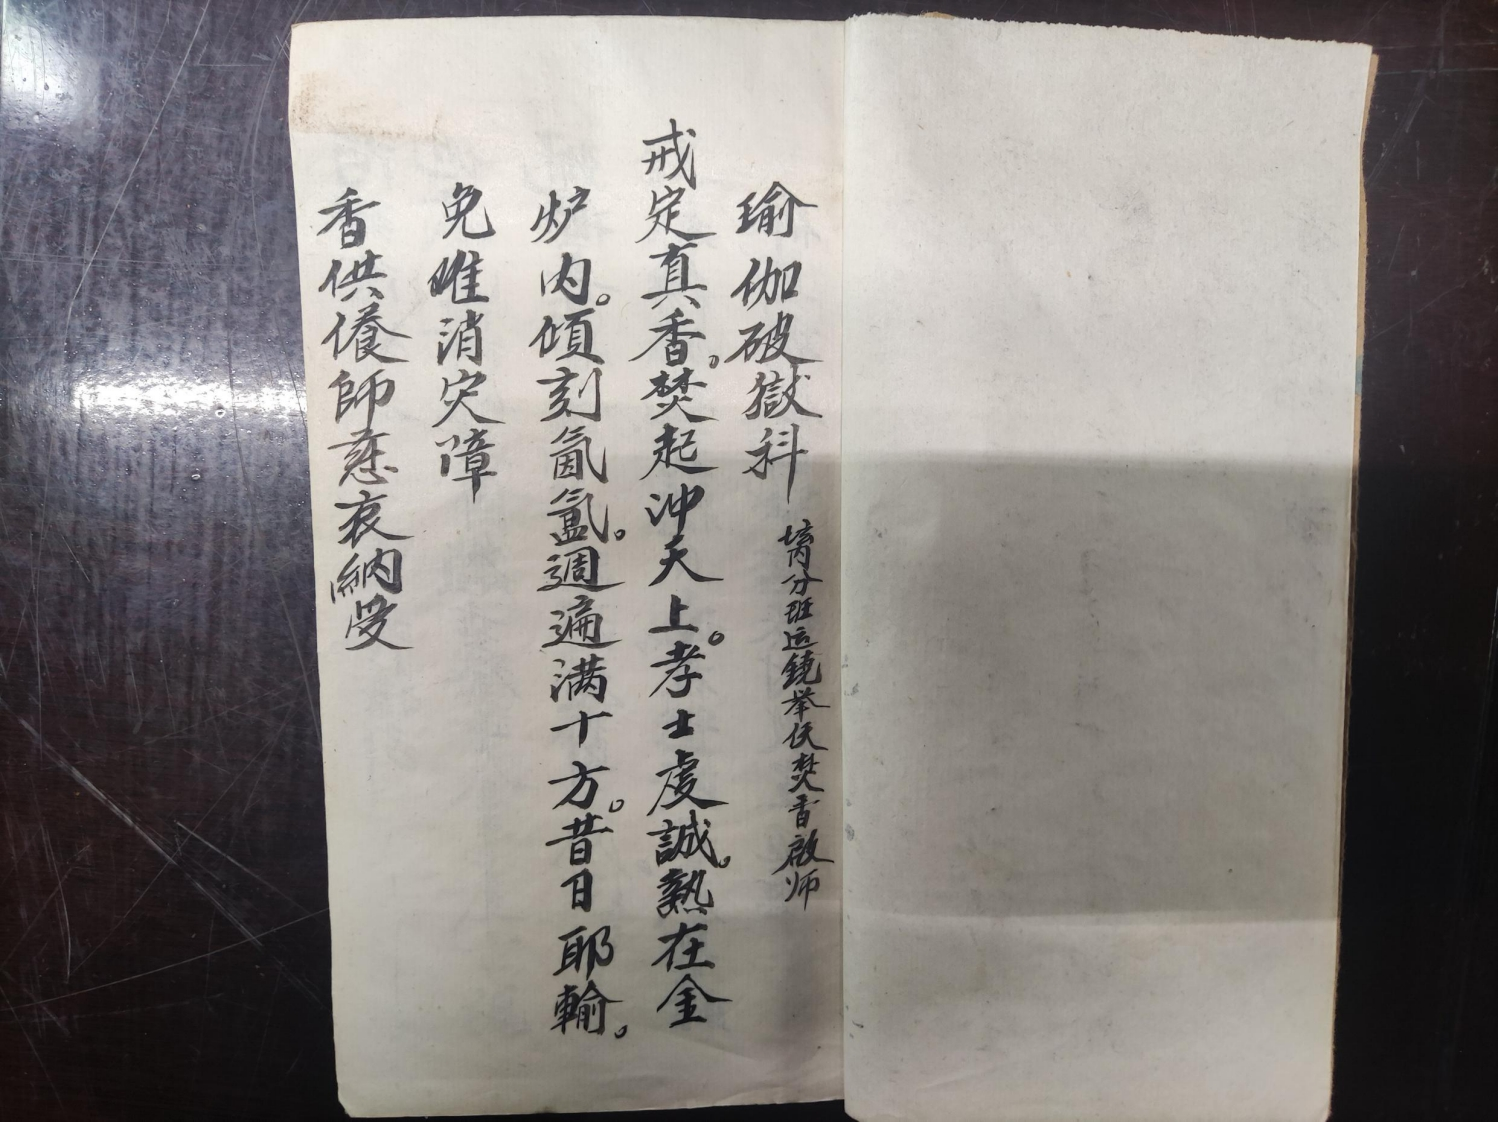 瑜伽破獄科
壇內分班运鐃举伏焚香啟师
戒定真香。焚起沖天上。孝士虔誠。熱在金
炉内。傾刻氤氳。週遍满十方。昔日耶輸。
免唯消灾障
香供儀師慈哀納受